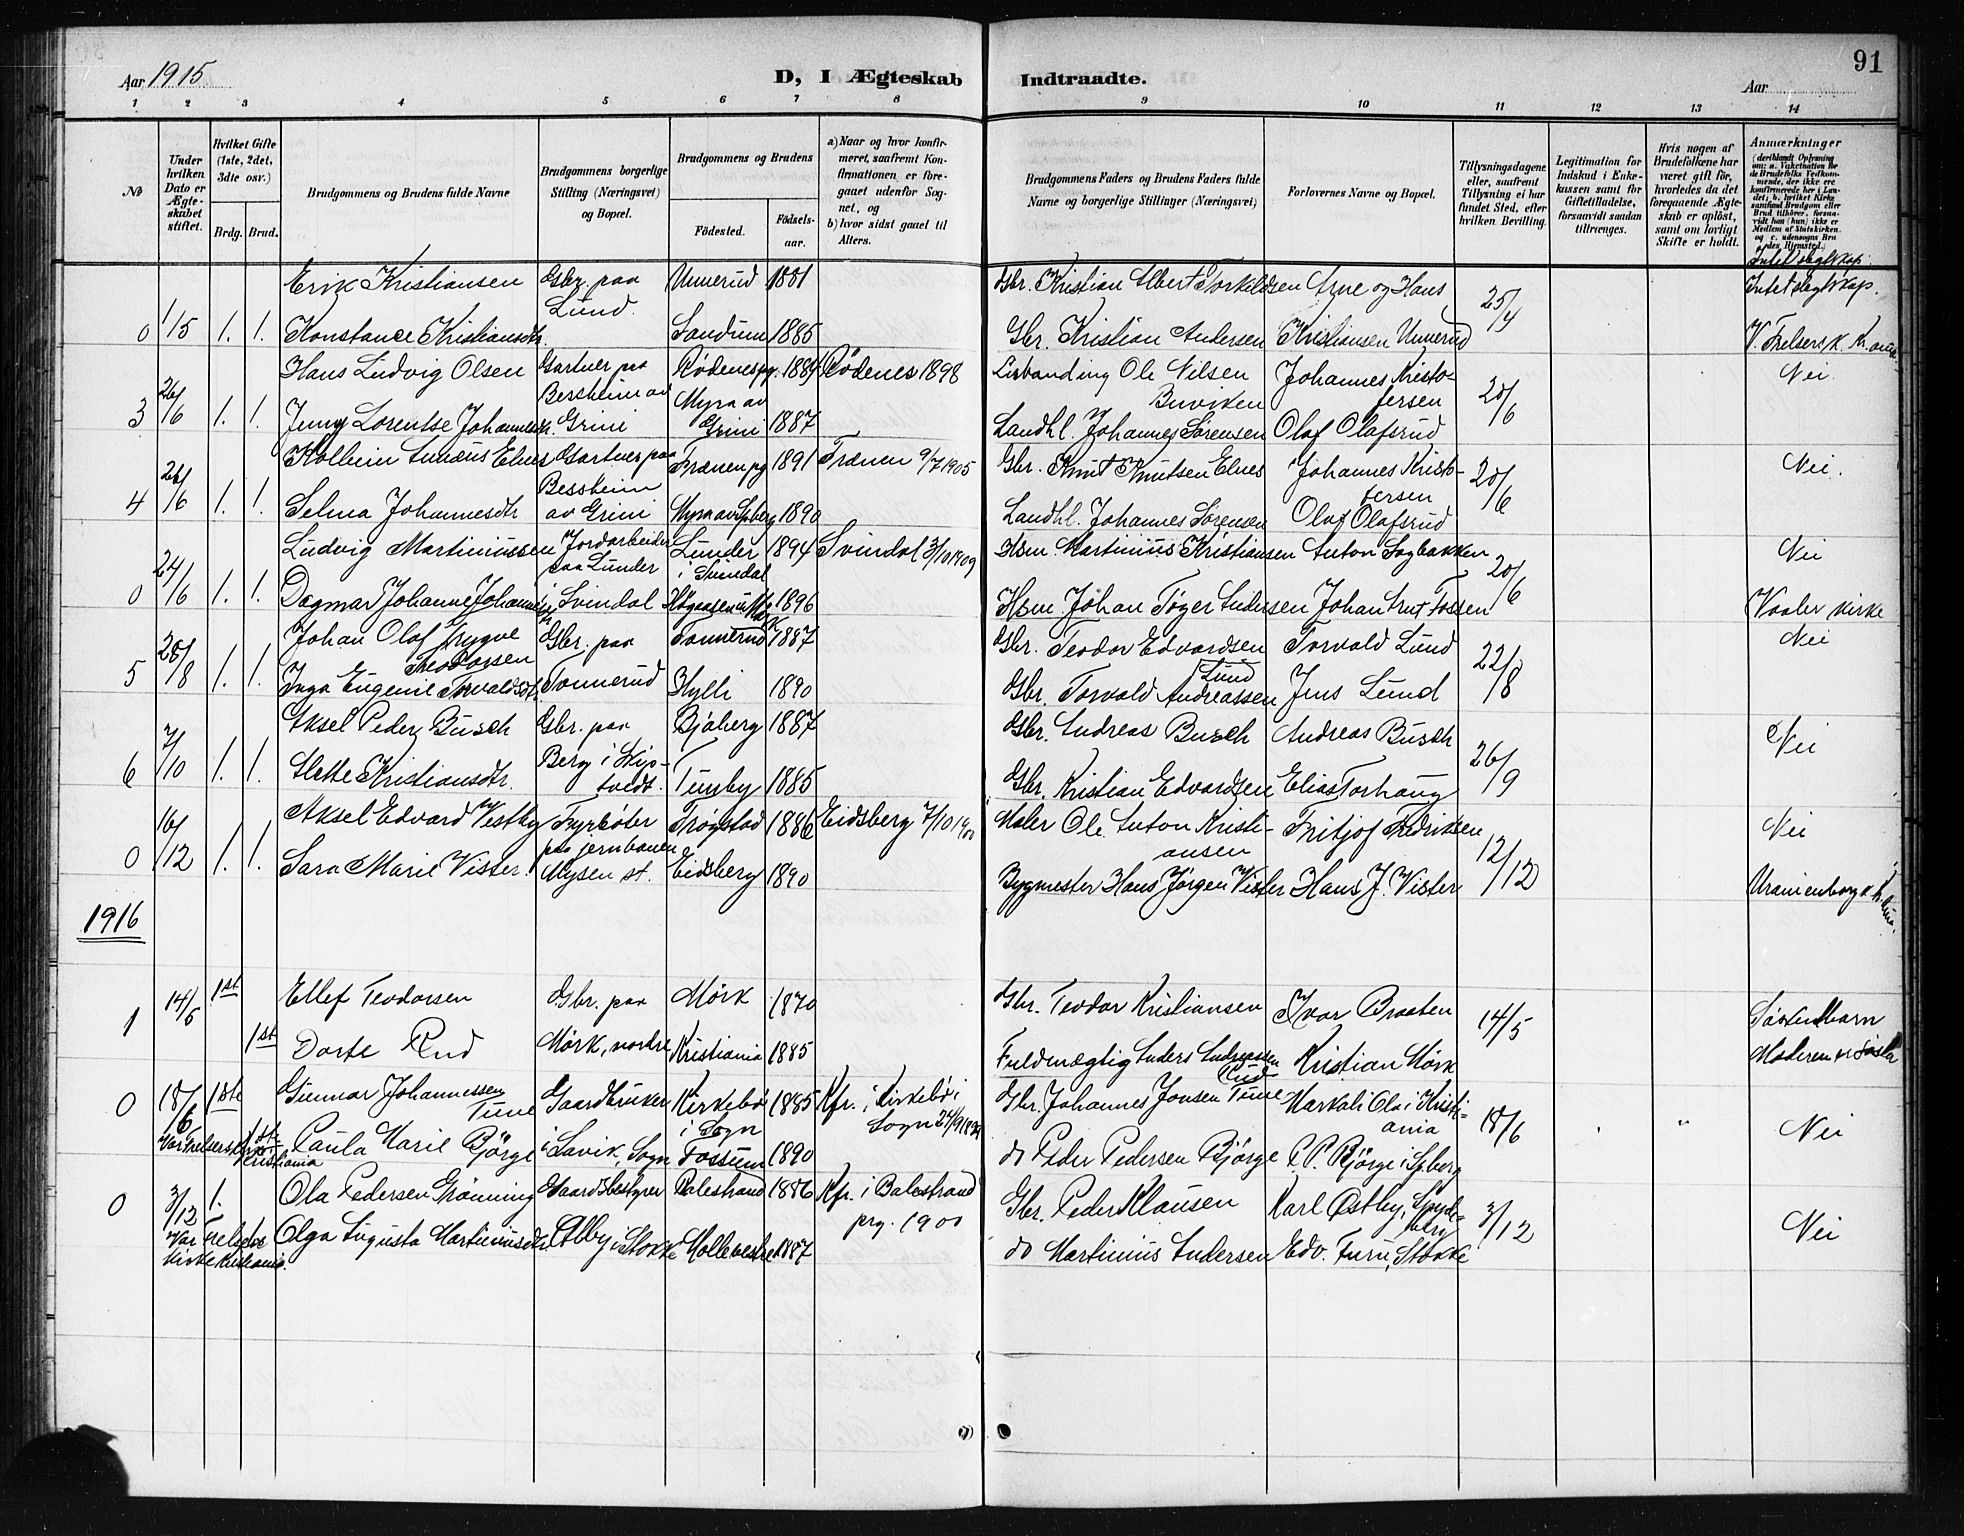 91
Aar 1915
D, I Ægteskab Indtraadte.
Aar
1 2 3 4 5 6 7 8 9 10 11 12 13 14
No
Under hvilken Dato er Ægteskabet stiftet.
Hvilket Gifte (1ste, 2det, 3dte osv.)
Brdg. Brud.
Brudgommens og Brudens fulde Navne
Brudgommens borgerlige Stilling (Næringsvei) og Bopæl.
Brudgommens og Brudens
Fødested.
Fødselsaar.
a) Naar og hvor konfirmeret, saafremt Konfirmationen er foregaaet udenfor Sognet, og
b) hvor sidst gaaet til Alters.
Brudgommens Faders og Brudens Faders fulde Navne og borgerlige Stillinger (Næringsvei)
Forlovernes Navne og Bopæl.
Tillysningsdagene eller, saafremt Tillysning ei har fundet Sted, efter hvilken Bevilling.
Legitimation for Indskud i Enkekassen samt for Giftetilladelse, forsaavidt saadan tiltrænges.
Hvis nogen af Brudefolkene har været gift før, hvorledes da det foregaaende Ægteskab er opløst, samt om lovligt Skifte er holdt.
Anmærkninger
Intet slegtskap
Erik Kristiansen Gbr. paa Lund. Unnerud 1881 Gbr. Kristian Albert Torkildsen Arne og Hans Intet slegtskap.
0 1/5 1. 1. Konstance Kristiansdtr. Sandum 1885 Gbr. Kristian Andersen Kristiansen Unnerud 25/4 V. Frelsersk. Kr.ania
Hans Ludvig Olsen Gartner paa Rødenes pg. 1884 Rødenes 1898 Ole Nilsen Buviken Johannes Kristofersen Nei
3 26/6 1. 1. Jenny Lorentse Johannesdtr. Bessheim av Grini Myra av Grini 1887 Landhl. Johannes Sørensen Olaf Olafsrud 20/6
Kolbein Linæus Elnes Gartner paa Frænen pg 1891 Frænen 9/7 1905 Gbr. Knut Knutsen Elnes Johannes Kristofersen Nei.
4 26/6 1. 1. Selma Johannesdtr Bessheim av Grini Myra av Spberg 1890 Landhl. Johannes Sørensen Olaf Olafsrud 20/6
Ludvig Martiniussen Jordarbeider paa Lunder Lunder i Svindal 1894 Svindal 3/10 1909 Hsm Martinius Kristiansen Anton Sagbakken Nei
0 24/6 1. 1. Dagmar Johanne Johannesdtr i Svindal 1896 Hsm. Johan Tøger Andersen Johan Fossen 20/6 Vaaler kirke
Johan Olaf Trygve Teodorsen Gbr. paa Tonnerud 1887 Gbr. Teodor Edvardsen Torvald Lund Nei
5 28/8 1. 1. Inga Eugenie Torvaldsdtr. Tonnerud Hylli 1890 Gbr. Torvald Andreassen Lund Jens Lund 22/8
Aksel Peder Busch Gbr. paa Bjaberg 1887 Gbr. Andreas Busch Andreas Busch Nei
6 7/10 1. 1. Kristiansdtr. Berg i Skiptvedt. Tunby 1885 Gbr. Kristian Edvardsen Elias Torhaug 26/9
Aksel Edvard Vestby Fyrbøter Trøgstad 1886 Eidsberg 7/10 1900 Maler Ole Anton Kristiansen Fritjof Fredriksen Nei
0 16/12 1. 1. Sara Marie Vister. paa jernbanen Mysen st. Eidsberg 1890 Bygmester Hans Jørgen Vister Hans J. Vister 12/12 Uranienborg k. Kr.ania.
1916
1 14/5 1st Ellef Teodorsen Gbr. paa Mørk 1870 Gbr. Teodor Kristiansen Ivar Braaten 14/5 Søskendbarn
1st Dorte Rud Mørk, nordre Kristiania 1885 Fuldmægtig Anders Andreassen Rud Kristian Mørk Mødrene er søstre
0 18/6 1ste Gunnar Johannessen Tune Gaardbruker Kirkebø i Sogn 1885 Kfr. i Kirkebø i Sogn Gbr. Johannes Jonsen Tune Markali Ola i Kristiania 18/6 Nei
Vor Frelsers kirke Kristiania 1ste Paula Marie Bjørge i Lavik, Sogn Fossum 1890 do Peder Pedersen Bjørge P. P. Bjørge i Spberg
0 3/12 1. Ola Pedersen Grønning Gaardsbestyrer Balestrand 1886 Kfr. i Balestrand prg. 1900 Gbr. Peder Klausen Karl Østby, Spydeberg 3/12 Nei
Vor Frelsers kirke Kristiania. Olga Augusta Martiniusdtr Alby i Stokke Mollevestre 1887 do Martinius Andersen Edv. Furu, Stokke